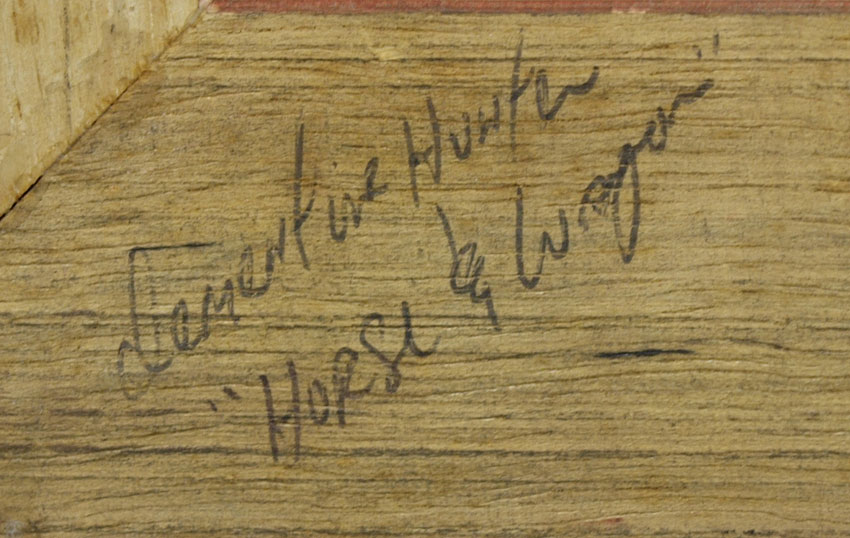 Clementine Hunter
"Horse & Wagon"